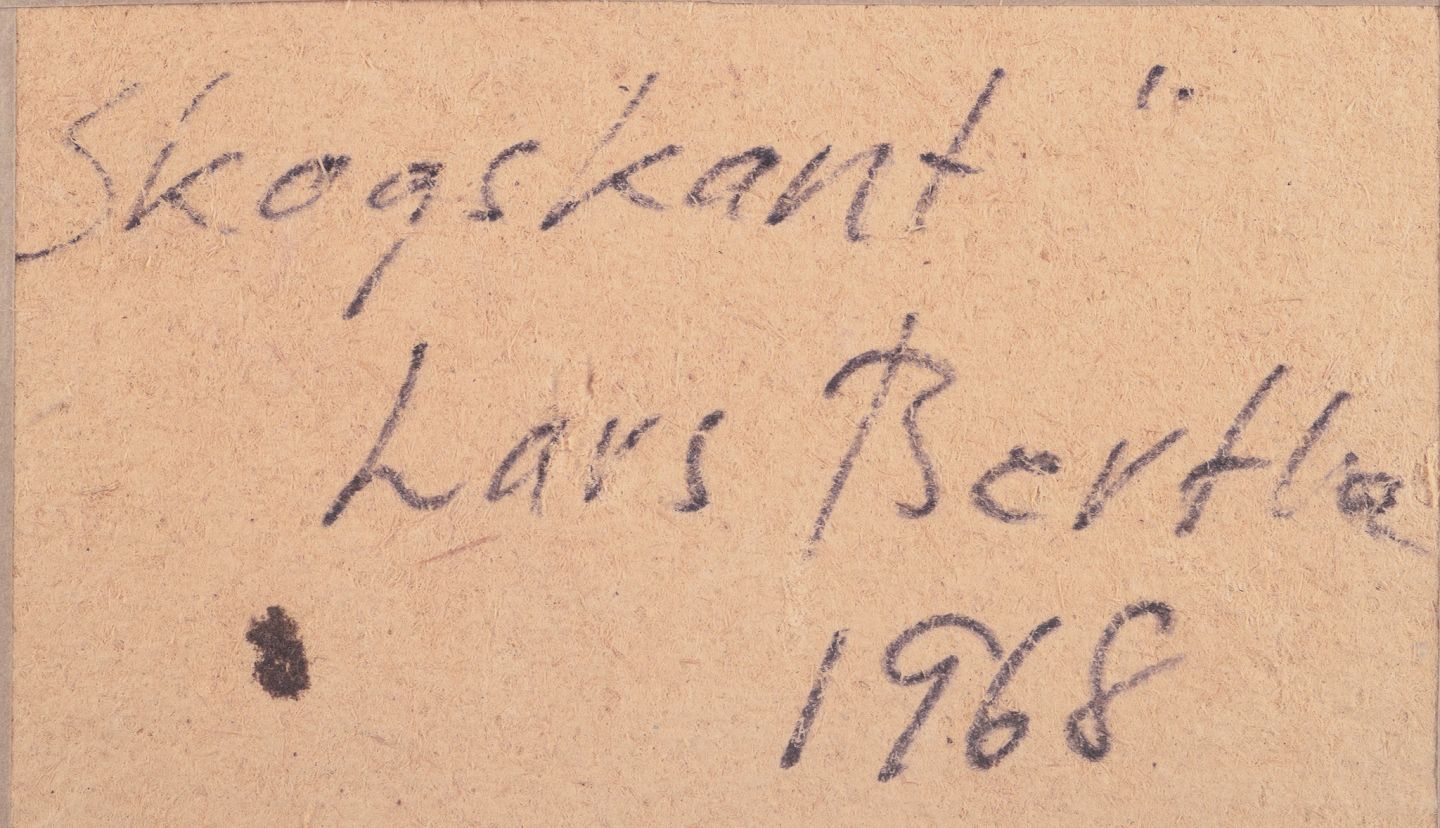 Skogskant"
Lars Berthe
1968